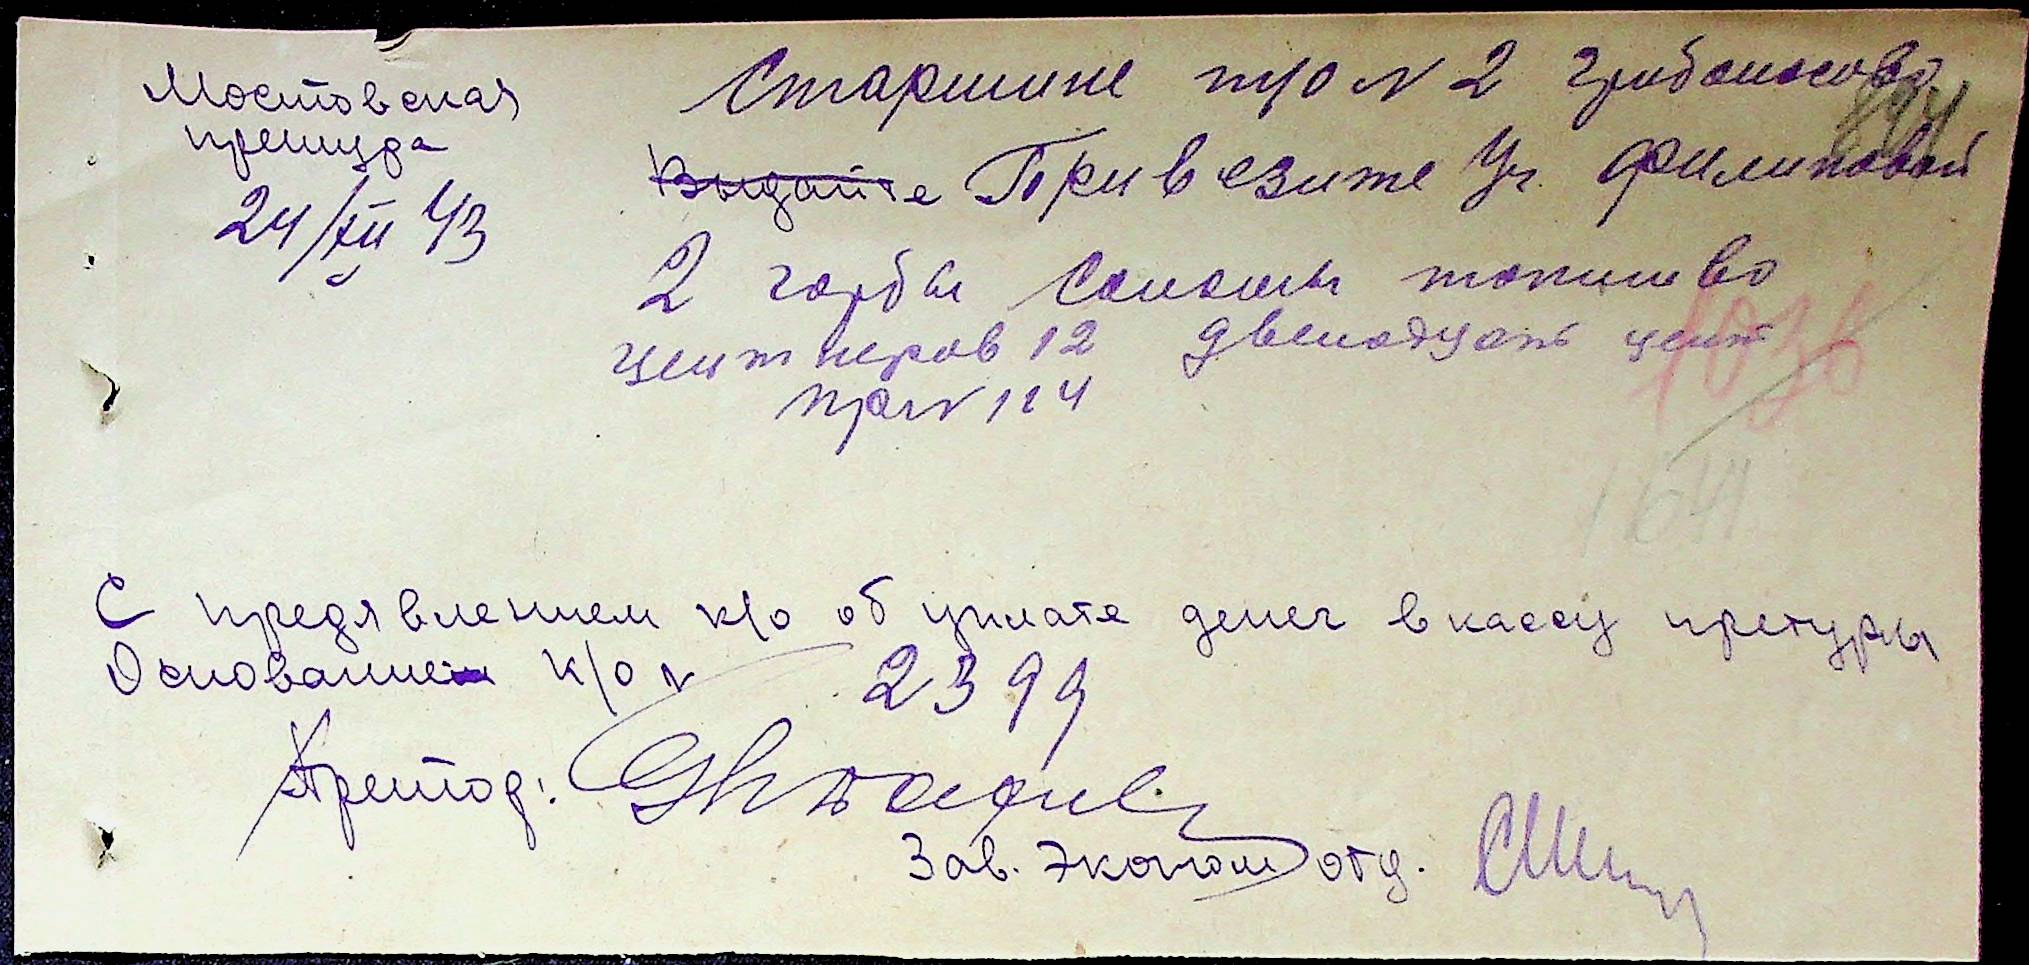 Мостовская
претура
24/XII 43
Старшине т/о N 2
894
Выдайте Привезите Уч. Филиповой
2 гарбы соломы топливо
центнеров 12 двенадцать цент
1036
1641
С предявлением к/о об уплате денег в кассу претуры
Основание к/о N 2399
Претор:
Зав. Эконом отд.